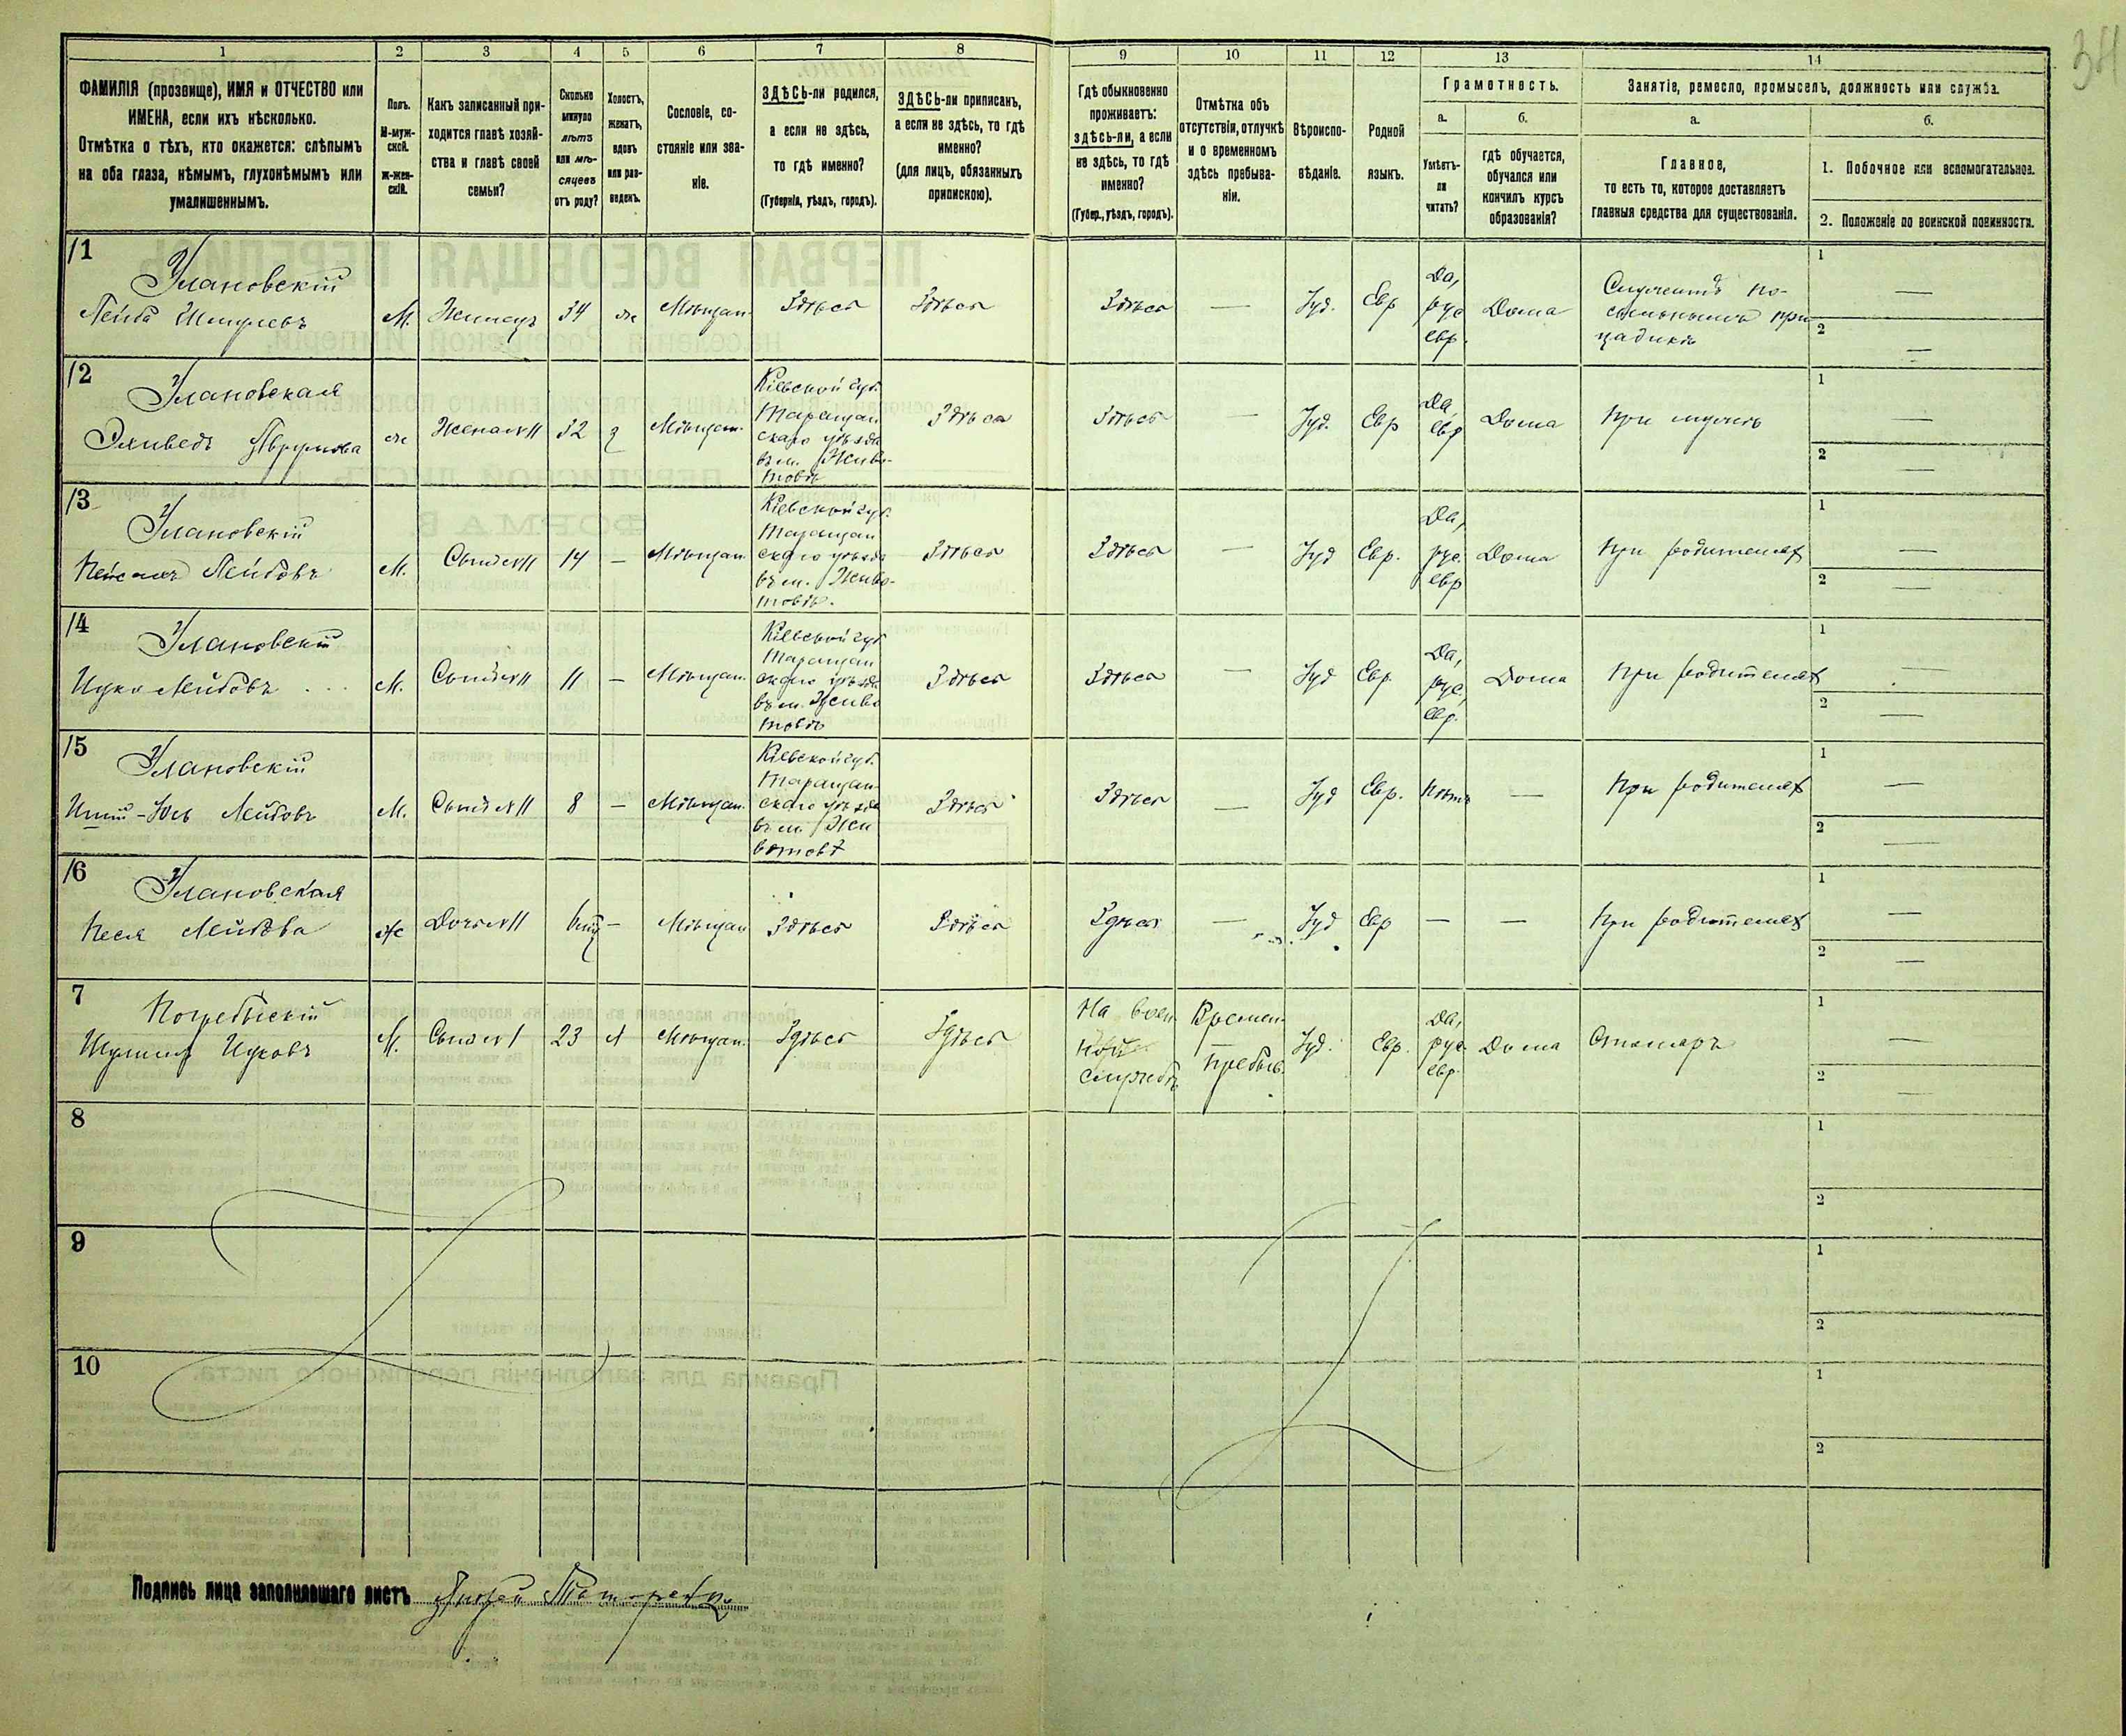 34
1
2
3
4
5
6
7
8
9
10
11
12
13
14
ФАМИЛІЯ (прозвище), ИМЯ и ОТЧЕСТВО или
ИМЕНА, если ихъ нѣсколько.
Отмѣтка о тѣхъ, кто окажется: слѣпымъ
на оба глаза, нѣмымъ, глухонѣмымъ или
умалишеннымъ.
Полъ.
М-муж-
ской.
Ж-жен-
скій.
Какъ записанный при-
ходится главѣ хозяй-
ства и главѣ своей
семьи?
Сколько
минуло
лѣтъ
или мѣ-
сяцевъ
отъ роду?
Холостъ,
женатъ,
вдовъ
или раз-
веденъ.
Сословіе, со-
стояніе или зва-
ніе.
ЗДѢСЬ-ли родился,
а если не здѣсь,
то гдѣ именно?
(Губернія, уѣздъ, городъ).
ЗДѢСЬ-ли приписанъ,
а если не здѣсь, то гдѣ
именно?
(для лицъ, обязанныхъ
припискою).
Гдѣ обыкновенно
проживаетъ:
здѣсь-ли, а если
не здѣсь, то гдѣ
именно?
(Губер., уѣздъ, городъ).
Отмѣтка объ
отсутствіи, отлучкѣ
и о временномъ
здѣсь пребыва-
ніи.
Вѣроиспо-
вѣданіе.
Родной
языкъ.
Грамотность.
а.
Умѣетъ-
ли
читать?
б.
гдѣ обучается,
обучался или
кончилъ курсъ
образованія?
Занятіе, ремесло, промыселъ, должность или служба.
а.
Главное,
то есть то, которое доставляетъ
главныя средства для существованія.
б.
1. Побочное или вспомогательное.
2. Положеніе по воинской повинности.
1
Улановскій
Лейба Шмулевъ
М.
Жилецъ
34
ж
Мѣщан.
Здѣсь
Здѣсь
Здѣсь
—
Іуд.
Евр
Да,
рус
евр.
Дома
Служитъ по-
сыльнымъ при
цадикѣ
1
—
2
—
2
Улановская
ж
Жена №11
32
з
Мѣщан.
Кіевской губ.
Таращан
скаго уѣзда
въ м. Живо-
товѣ
Здѣсь
Здѣсь
—
Іуд.
Евр
Да,
евр
Дома
При мужѣ
1
—
2
—
3
Улановскій
Пейсахъ Лейбовъ
М.
Сынъ №11
14
—
Мѣщан
Кіевской губ.
Таращан
скаго уѣзда
въ м. Живо-
товѣ.
Здѣсь
Здѣсь
—
Іуд
Евр.
Да,
рус.
евр
Дома
При родителях
1
—
2
—
4
Улановскій
Ицко Лейбовъ
М.
Сынъ №11
11
—
Мѣщан.
Кіевской губ
Таращан
скаго уѣзда
въ м. Живо
товѣ
Здѣсь
Здѣсь
—
Іуд
Евр.
Да,
рус,
евр.
Дома
При родителях
1
—
2
—
5
Улановскій
М.
Сынъ №11
8
—
Мѣщан.
Кіевской губ.
Таращан-
скаго уѣзда
въ м. Жи
вотовѣ
Здѣсь
Здѣсь
—
Іуд
Евр.
Нѣтъ
—
При родителях
1
—
2
—
6
Улановская
Песя Лейбова
ж
Дочь №11
—
Мѣщан
Здѣсь
Здѣсь
Здѣсь
—
Іуд
Евр
—
—
При родителях
1
—
2
—
7
Погребыскій
Шулимъ Ицковъ
М.
Сынъ №1
23
Мѣщан.
Здѣсь
Здѣсь
На воен
ной
службѣ
Времен.
пребыв.
Іуд.
Евр.
Да,
рус.
евр.
Дома
Столяръ
1
—
2
—
8
1
2
9
1
2
10
1
2
Подпись лица заполнявшаго листъ